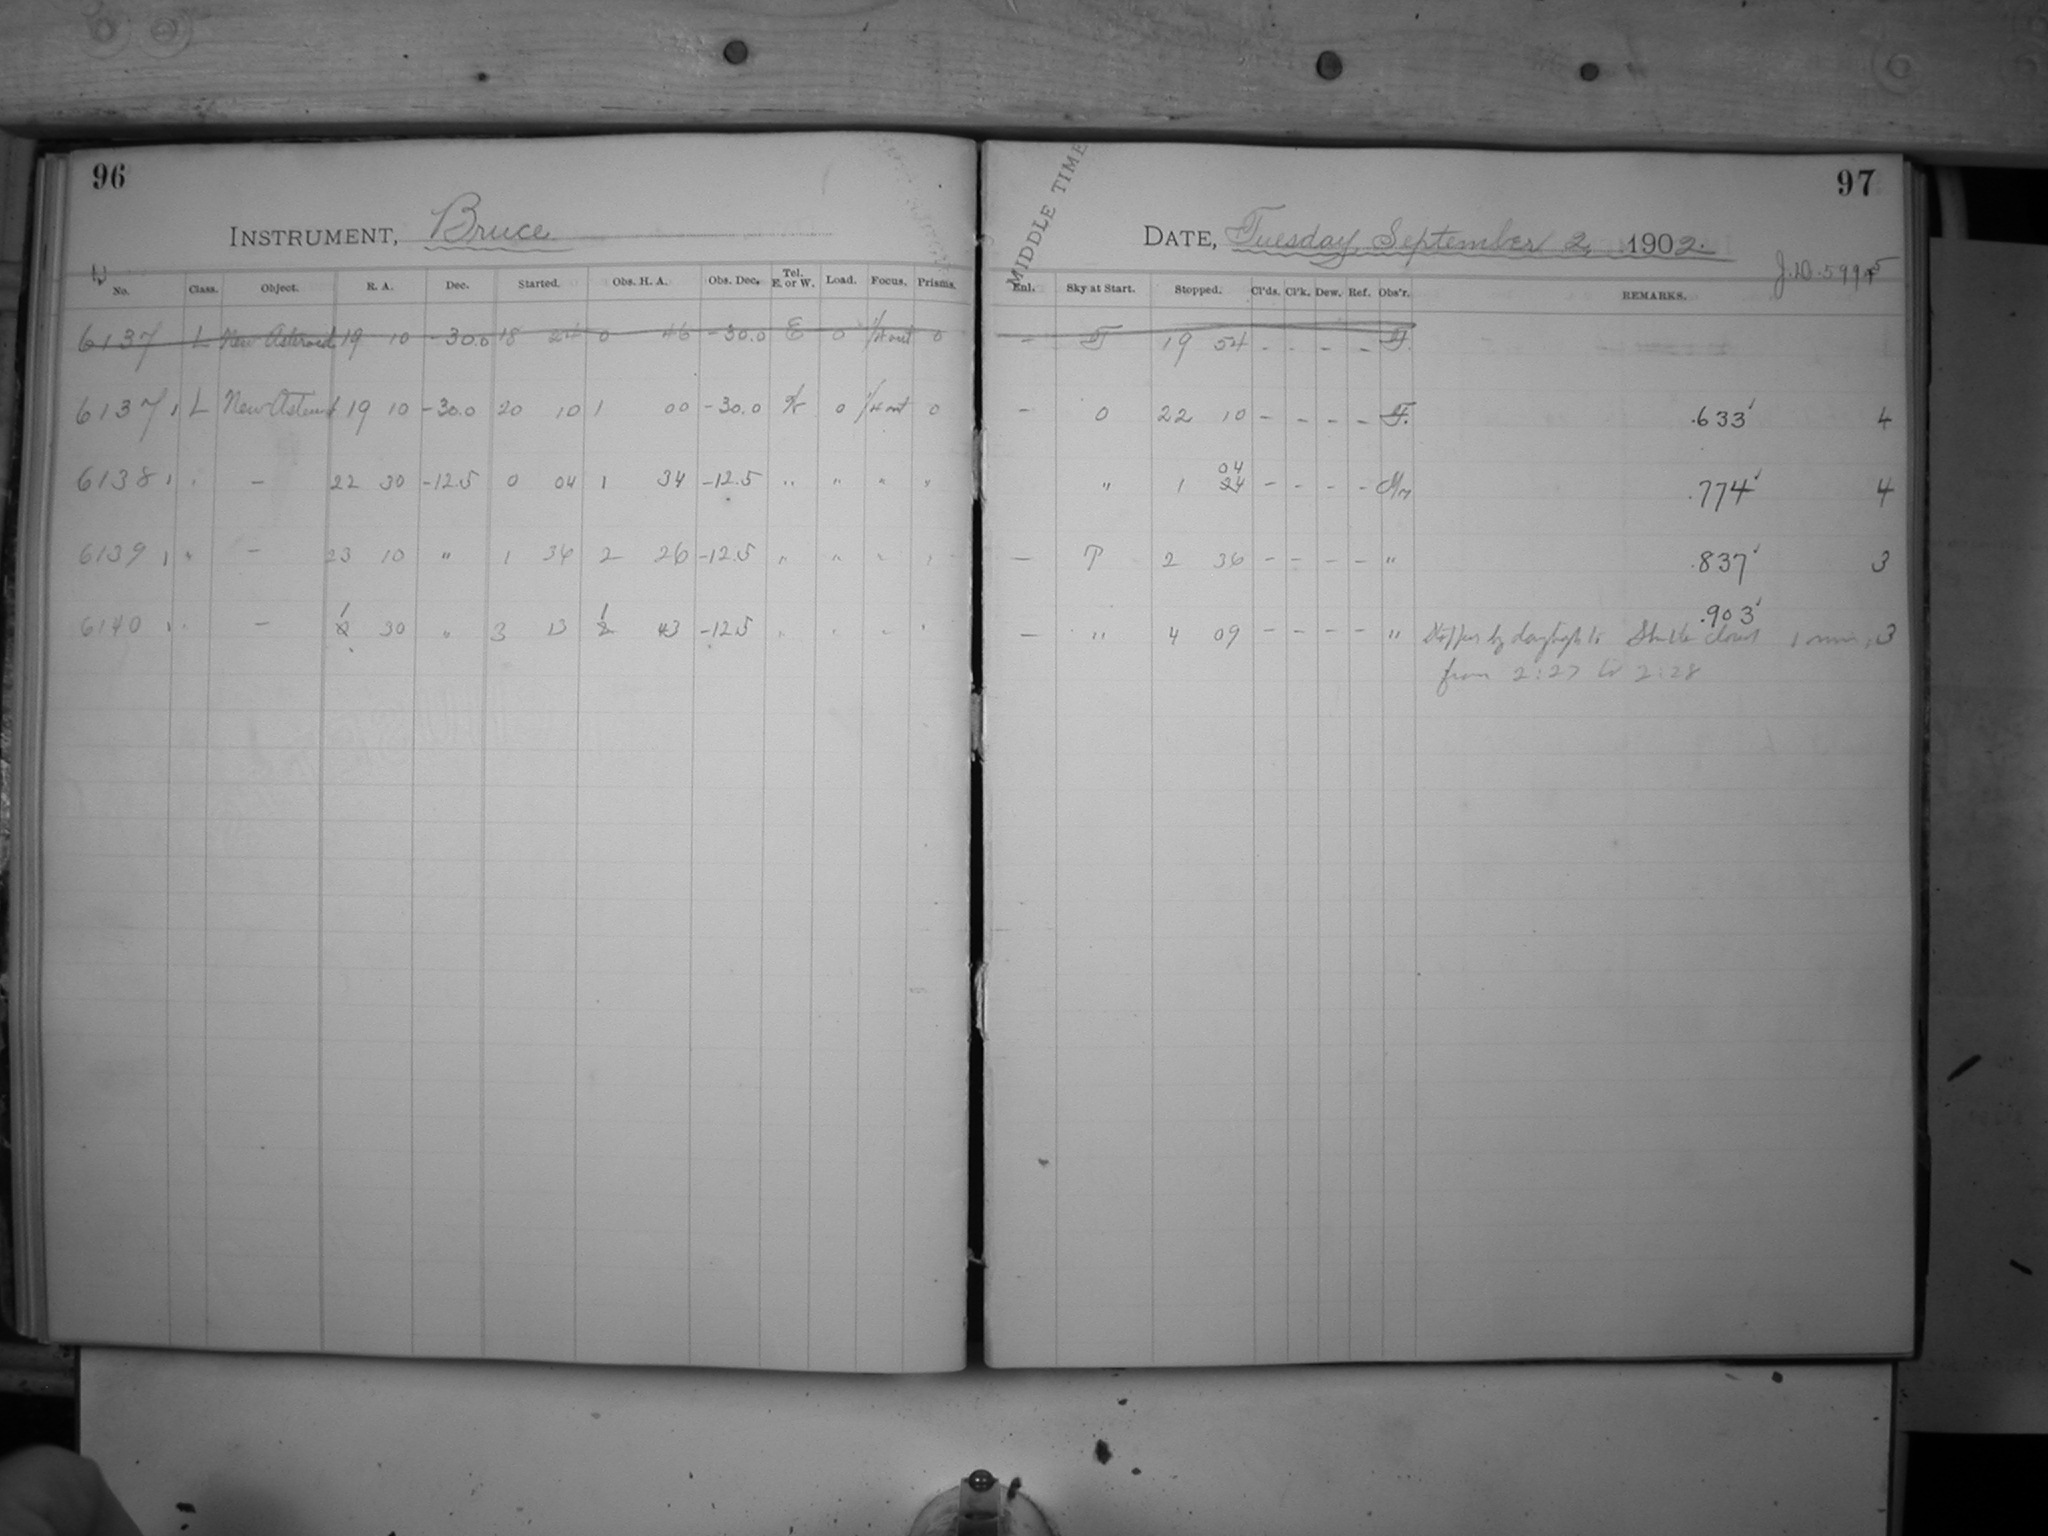 96
INSTRUMENT, Bruce
No. Class. Object. R. A. Dec. Started. Obs. H. A. Obs. Dec. Tel. E. or W. Load. Focus. Prisms.
6137 L New Asteroid 19 10 -30.0 18 24 0 46 -30.0 E 0 1/4 out 0
6137 L New Asteroid 19 10 -30.0 20 10 1 00 -30.0 0 1/4 out 0
6138 " - 22 30 -12.5 0 04 1 34 -12.5 " " " "
6139 " - 23 10 " 1 36 2 26 -12.5 " " " "
6140 " - 1 30 " 3 13 1 43 -12.5 " " " "
97
MIDDLE TIME
DATE, Tuesday, September 2, 1902.
J.D. 5995
Enl. Sky at Start. Stopped. Cl'ds. Cl'k. Dew. Ref. Obs'r. REMARKS.
- 19 54 - - - -
- 0 22 10 - - - - .633 4
" 1 04 24 - - - - .774 4
- P 2 36 - - - - " .837 3
.903
- " 4 09 - - - - " by daylight closed 1 min, 3
from 2:27 to 2:28